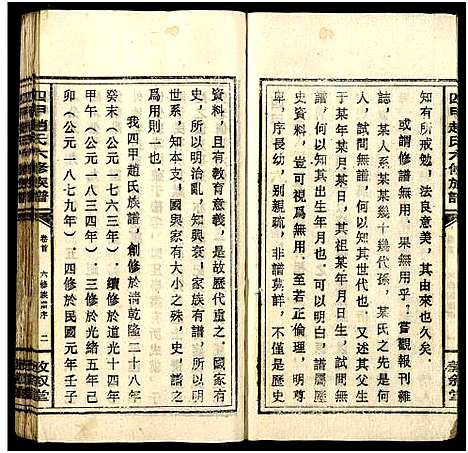 四甲趙氏六修族譜
知有所戒勉，法良意美，其由來也久矣。
或謂修譜無用。果無用乎！嘗觀報刊雜
誌，某人系某某幾十幾代孫，某氏之先是何
人，試問無譜，何以知其世代也。某某生
于某年某月某日，其祖某年月日生，其
壽幾何，試問無譜，何以知之
也。譜之所載，其出生年月也。可以明白
矣，豈可視爲無用。至若正倫理，明尊
序長幼，別親疏，非譜莫詳，不僅是歷史
資料，且有教育意義，是故歷代重之，國家有
史，所以明治亂，知興衰，家族有譜，所以明
世系，知本支，國與家有大小之殊，史與譜之
爲用則一也。
我四甲趙氏族譜，創修於清乾隆二十八年
癸未（公元一七六三年）。續修於道光十四年
甲午（公元一八三四年）。三修於光緒五年己
卯（公元一八七九年）。五四修於民國元年壬子
四甲趙氏六修族譜
卷首
六修族譜序
二
敦叙堂